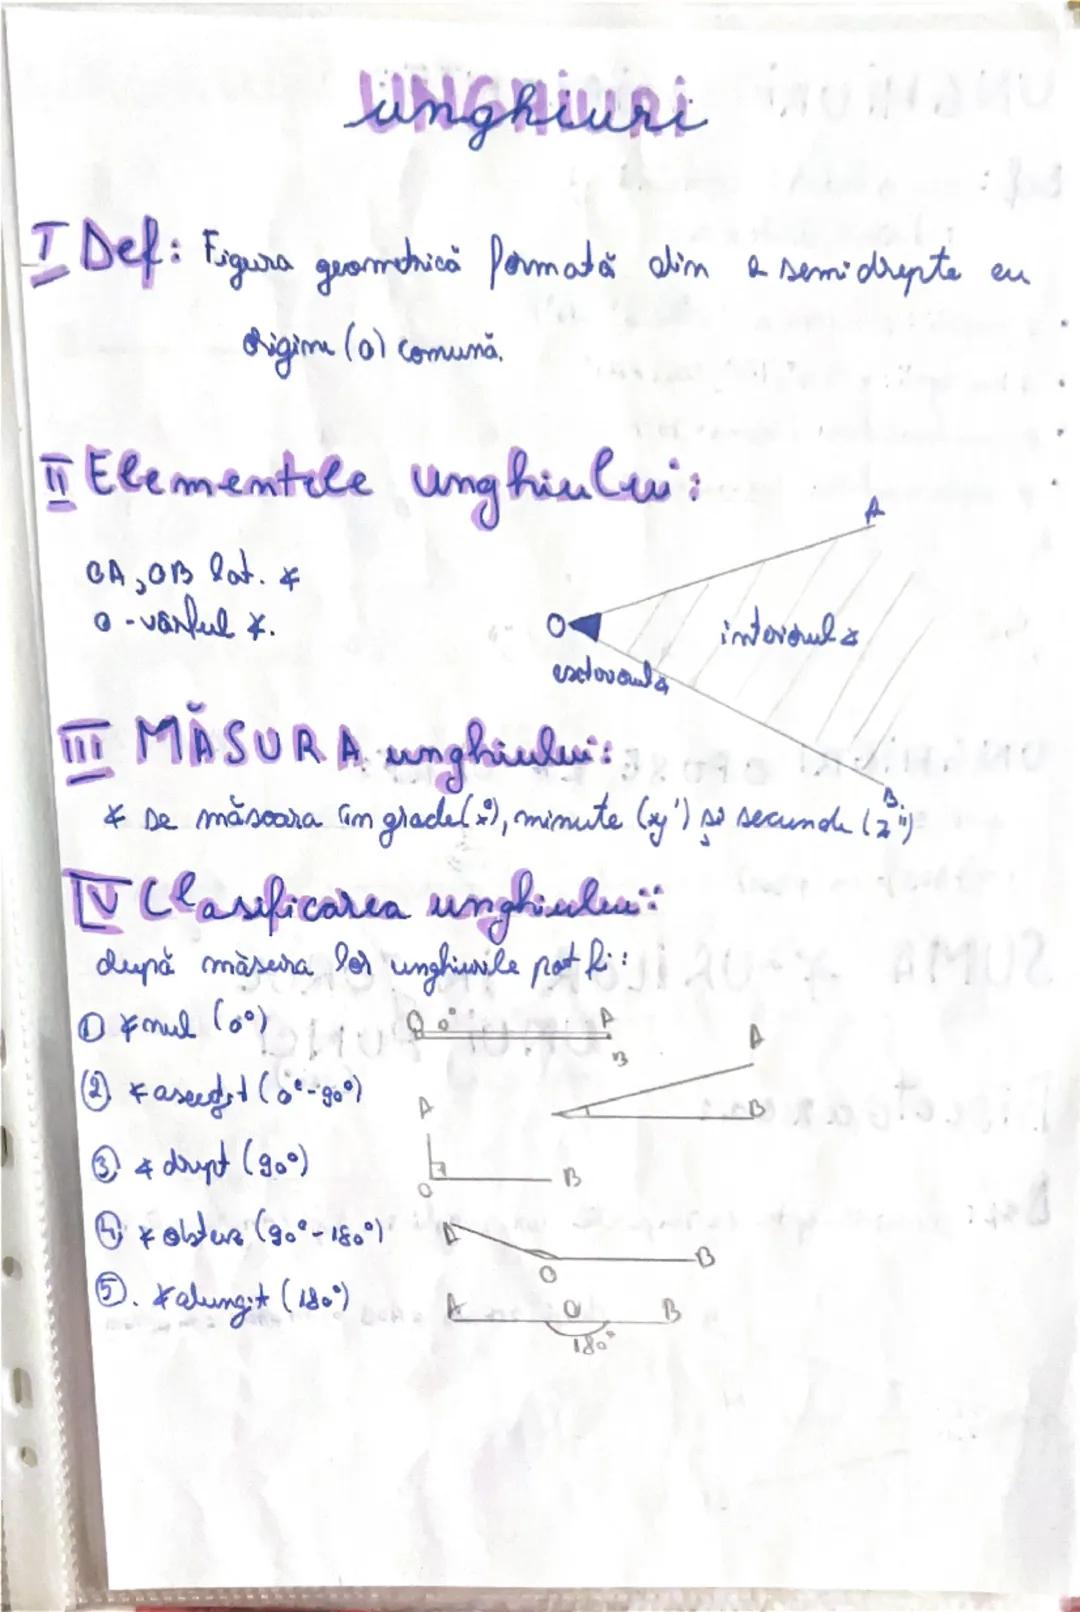 unghiuri
I Def: Figura geometrică formată din 2 semidrepte cu
origine (O) comună.
II Elementele unghiului:
A
OA, OB lat. ∢
O - vârful ∢.
O
interiorul ∢
exteriorul ∢
III MĂSURA unghiului:
B
∢ se măsoara în grade (x°), minute (y') și secunde (z")
IV Clasificarea unghiului:
după măsura lor unghiurile pot fi:
① ∢ nul (0°)
O 0° A
B
② ∢ ascuțit (0°-90°)
A
B
③ ∢ drept (90°)
A
O B
④ ∢ obtuz (90°-180°)
A
O B
⑤. ∢ alungit (180°)
A O B
180°